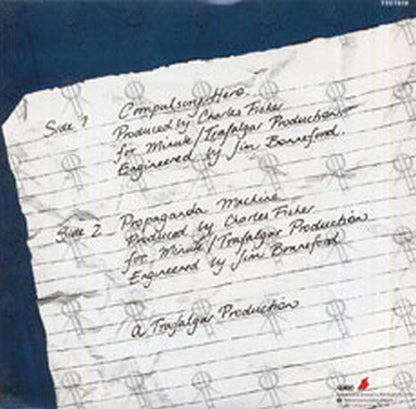 Side 1 Compulsory Hero.
Produced by Charles Fisher
for Minute/Trafalgar Productions
Engineered by Jim Bonnefond.
Side 2 Propaganda Machine
Produced by Charles Fisher
for Minute/Trafalgar Production
Engineered by Jim Bonnefond
a Trafalgar Production